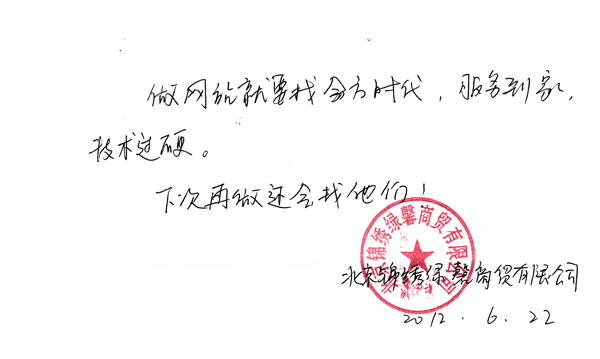 做网络就要找全方时代，服务到家，
技术过硬。
下次再做还会找他们！
北京锦绣绿馨商贸有限公司
北京锦绣绿馨商贸有限公司
2012.6.22